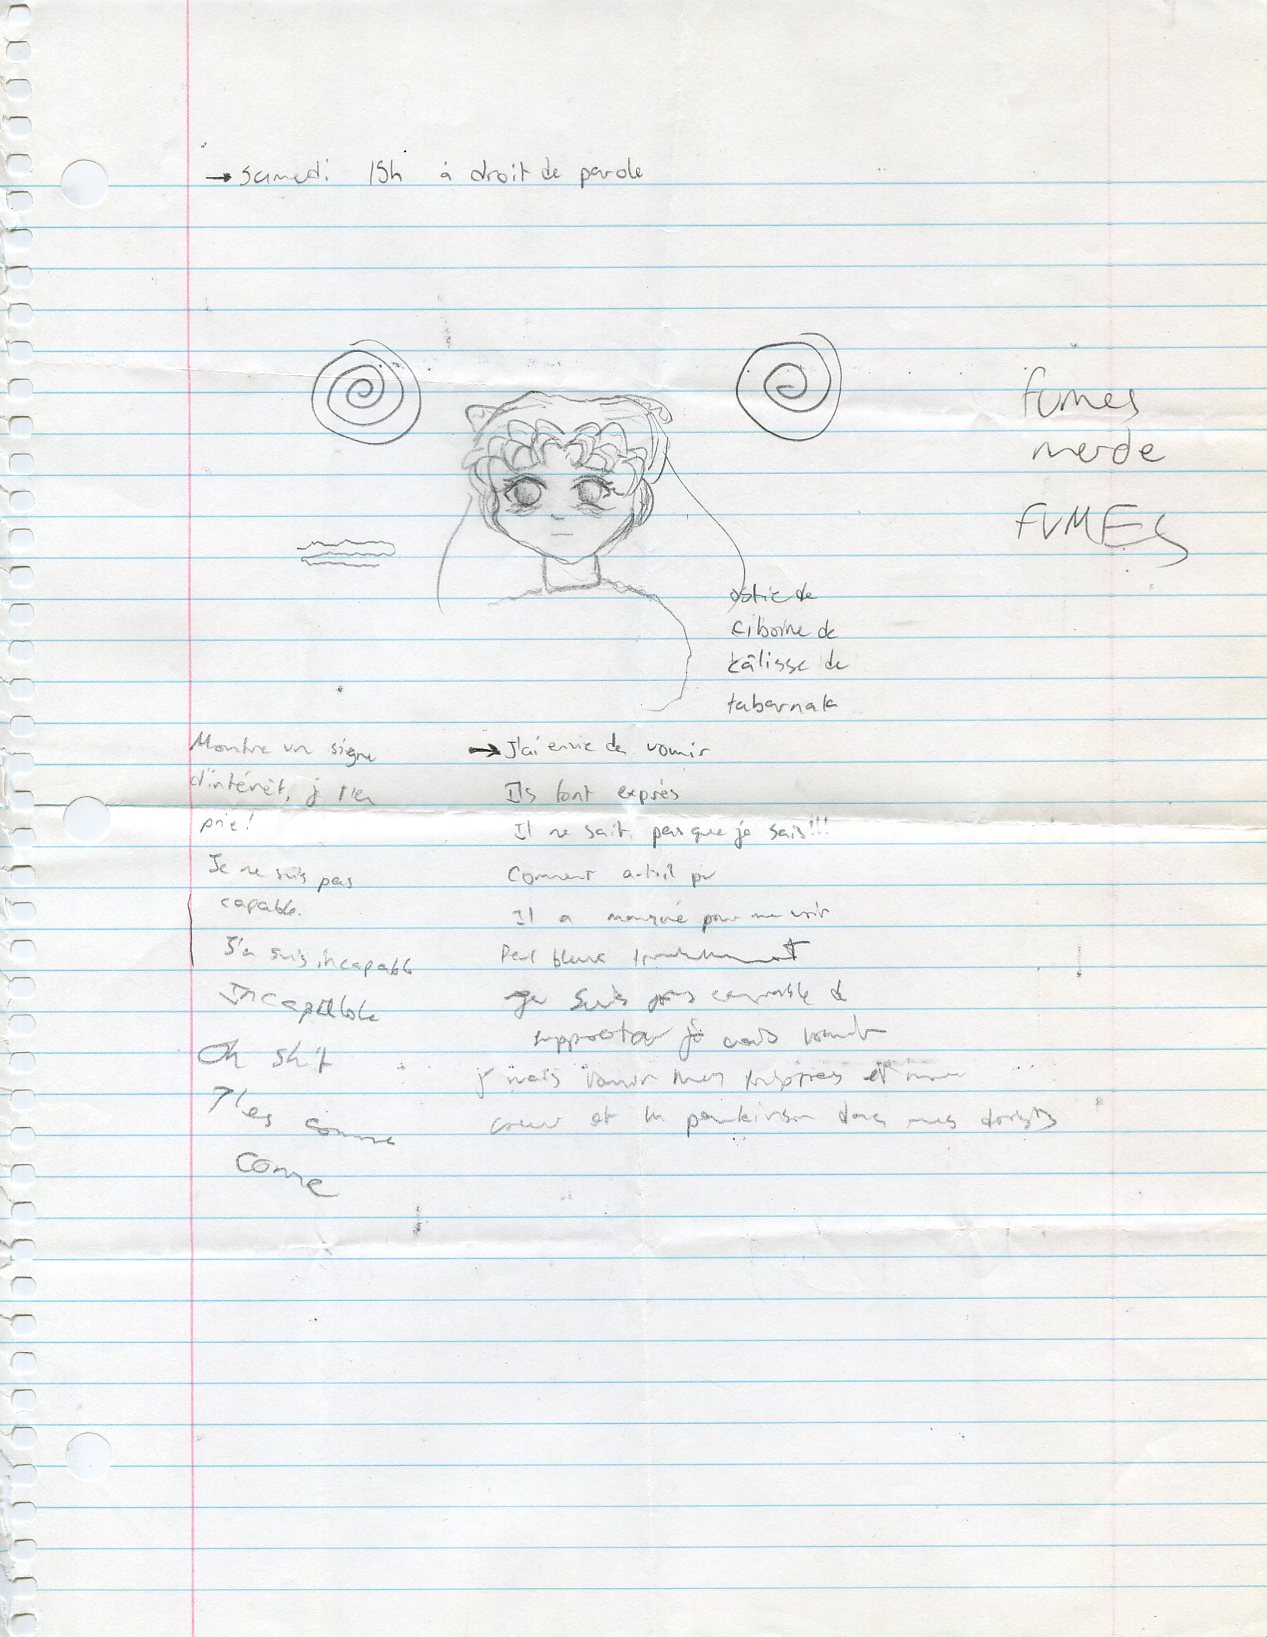 → samedi 15h à droit de parole
fumes
merde
FUMES
ostie de
ciboire de
câlisse de
tabarnak
Montre un signe
d'intérêt, j t'en
prie!
Je ne suis pas
capable.
J'en suis incapable
Incapable
Oh shit
T'es comme
Come
→ J'ai envie de vomir
Ils font exprès
Il ne sait pas que je sais!!!
Comment a-t-il pu
Il a manqué pour me voir
bleue
suis pas capable de
supporter je vais vomir
j'vais vomir mes trippes et mon
coeur et la parkinson dans mes doigts